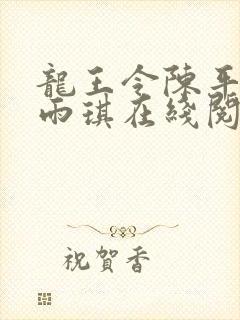 龍王令陳平
雨琪在綫閱
祝賀香